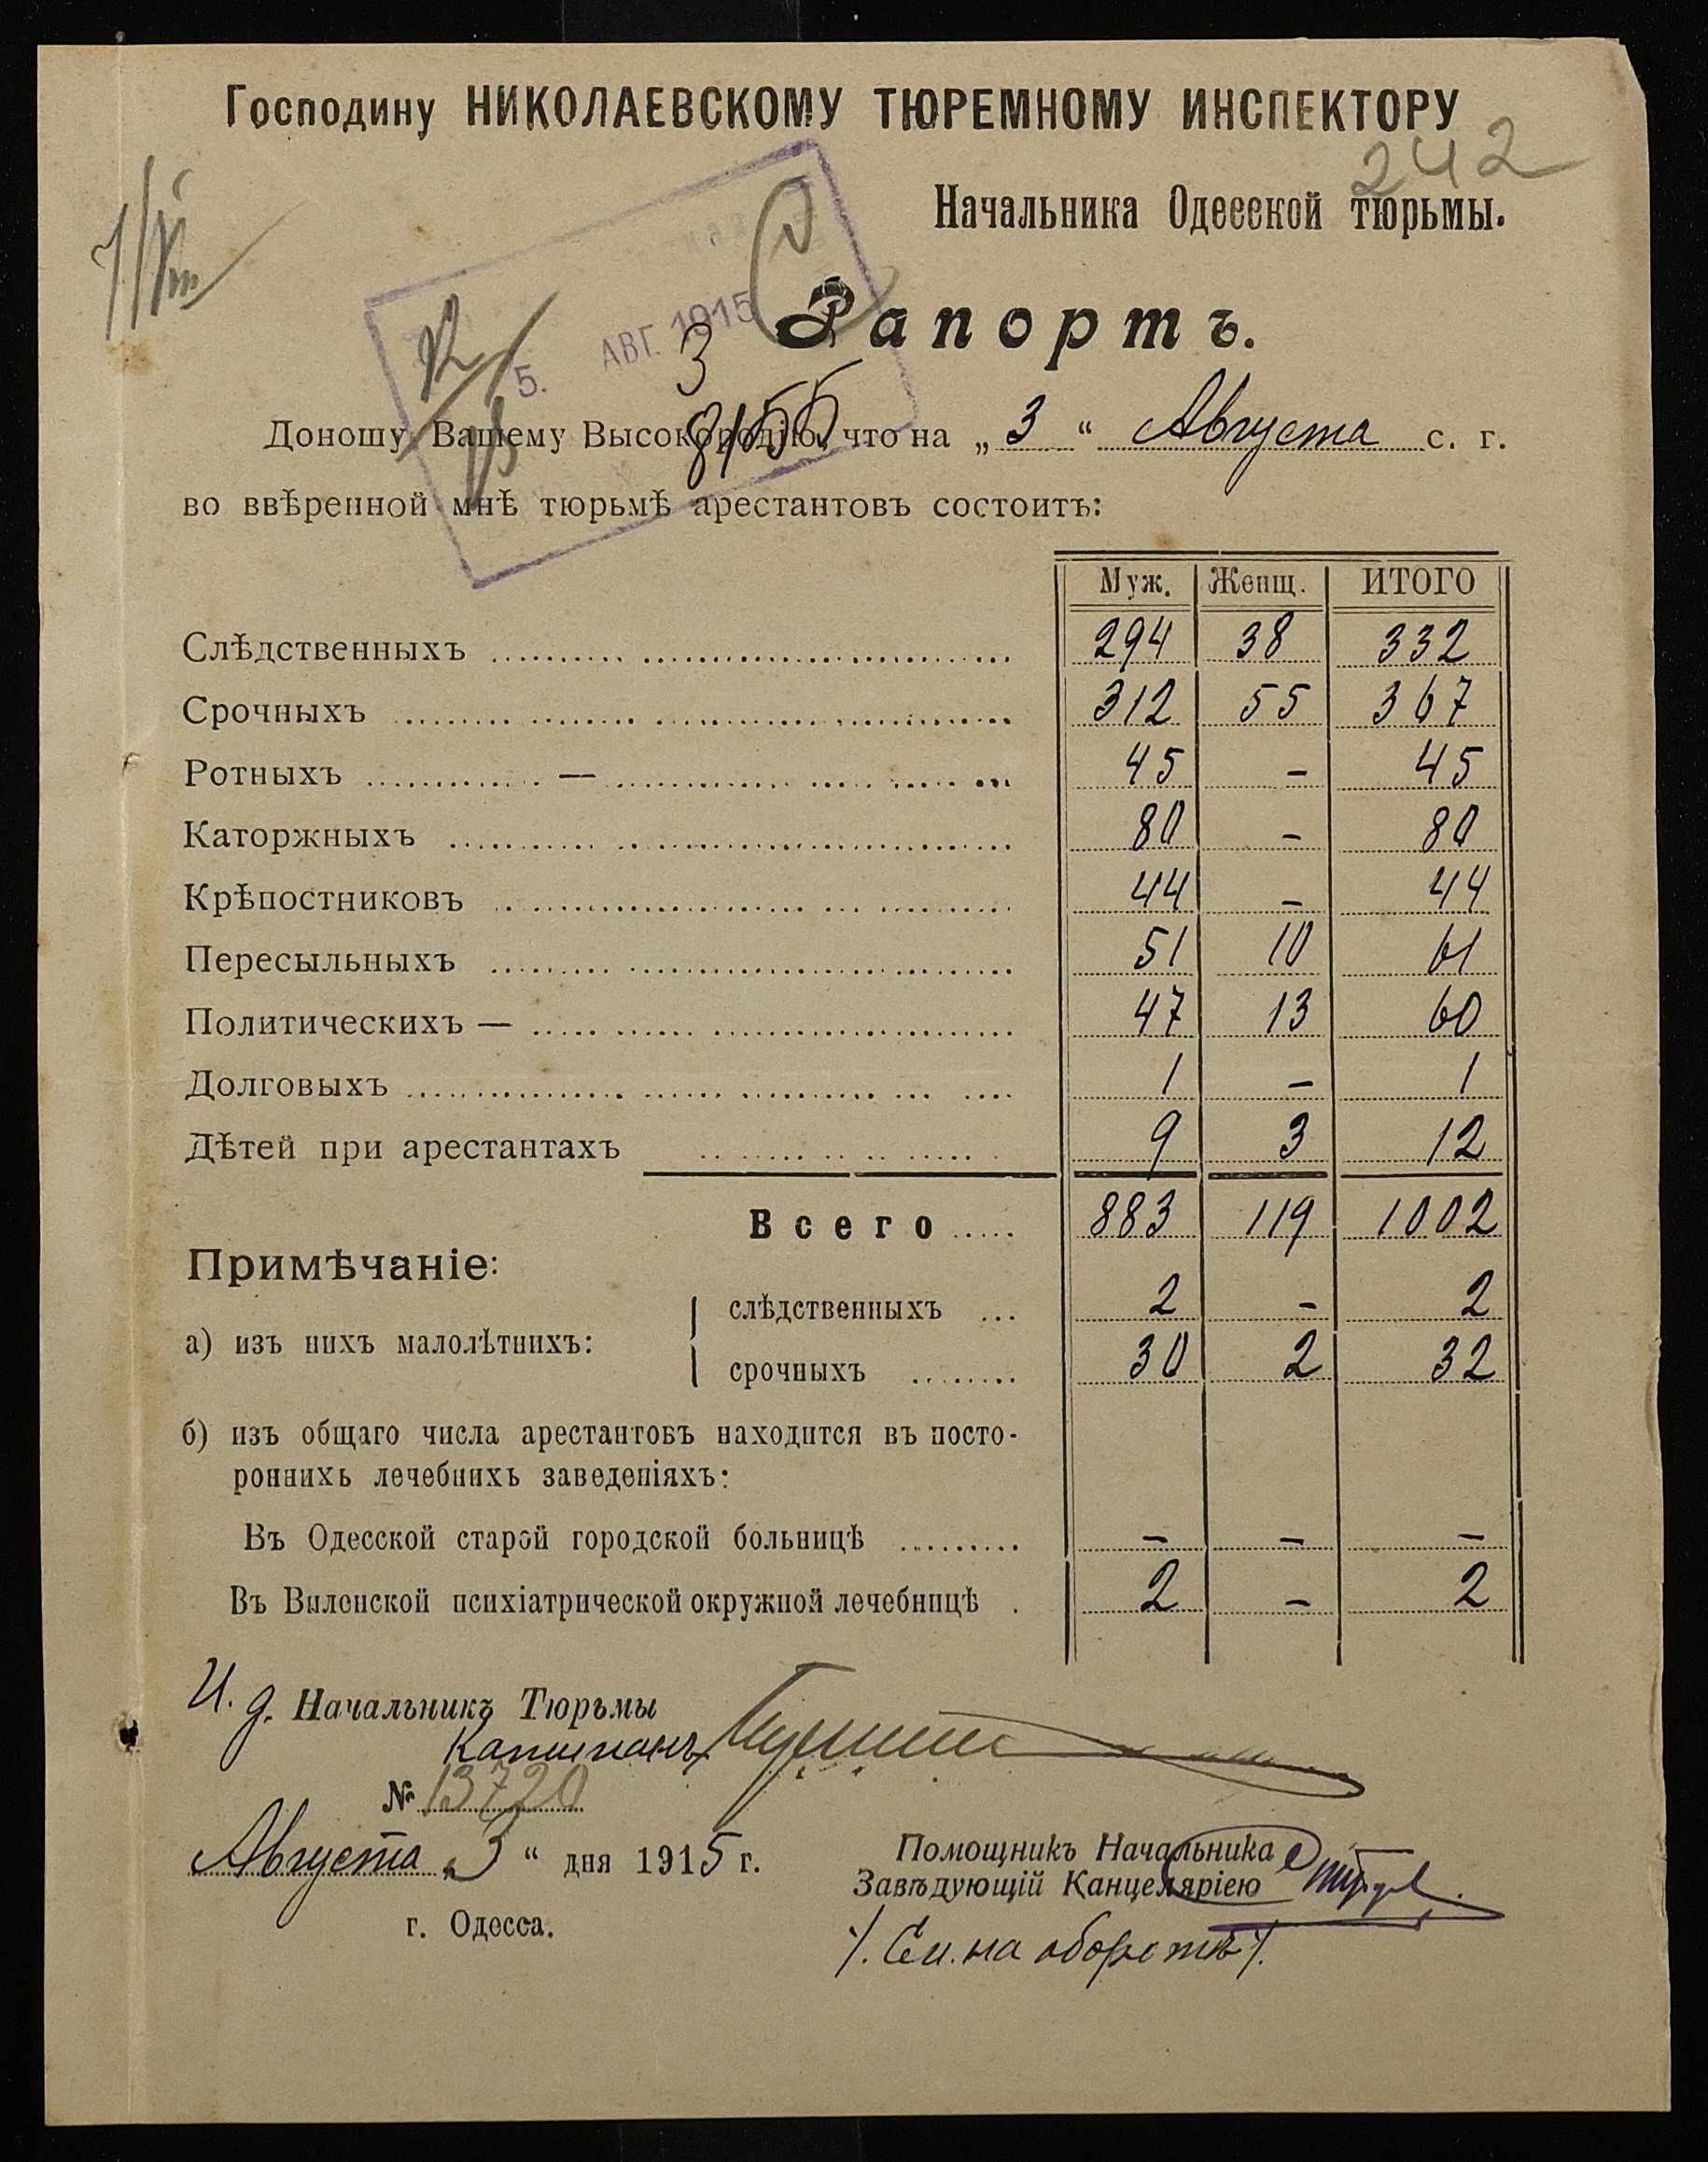 Господину НИКОЛАЕВСКОМУ ТЮРЕМНОМУ ИНСПЕКТОРУ
242
Начальника Одесской тюрьмы.
5. АВГ. 1915
Рапортъ.
3
8155
Доношу Вашему Высокородію, что на „3“ Августа с. г.
во ввѣренной мнѣ тюрьмѣ арестантовъ состоитъ:
Муж. Женщ. ИТОГО
Слѣдственныхъ 294 38 332
Срочныхъ 312 55 367
Ротныхъ — 45 - 45
Каторжныхъ 80 - 80
Крѣпостниковъ 44 - 44
Пересыльныхъ 51 10 61
Политическихъ — 47 13 60
Долговыхъ 1 - 1
Дѣтей при арестантахъ 9 3 12
Всего 883 119 1002
Примѣчаніе:
слѣдственныхъ 2 - 2
а) изъ нихъ малолѣтнихъ:
срочныхъ 30 2 32
б) изъ общаго числа арестантовъ находится въ посто-
роннихъ лечебнихъ заведеніяхъ:
Въ Одесской старой городской больницѣ - - -
Въ Виленской психіатрической окружной лечебницѣ 2 - 2
И. д. Начальникъ Тюрьмы
Капитанъ
№ 13720
Августа „3“ дня 1915 г.
Помощникъ Начальника
Завѣдующій Канцеляріею
г. Одесса.
/. См. на оборотѣ /.